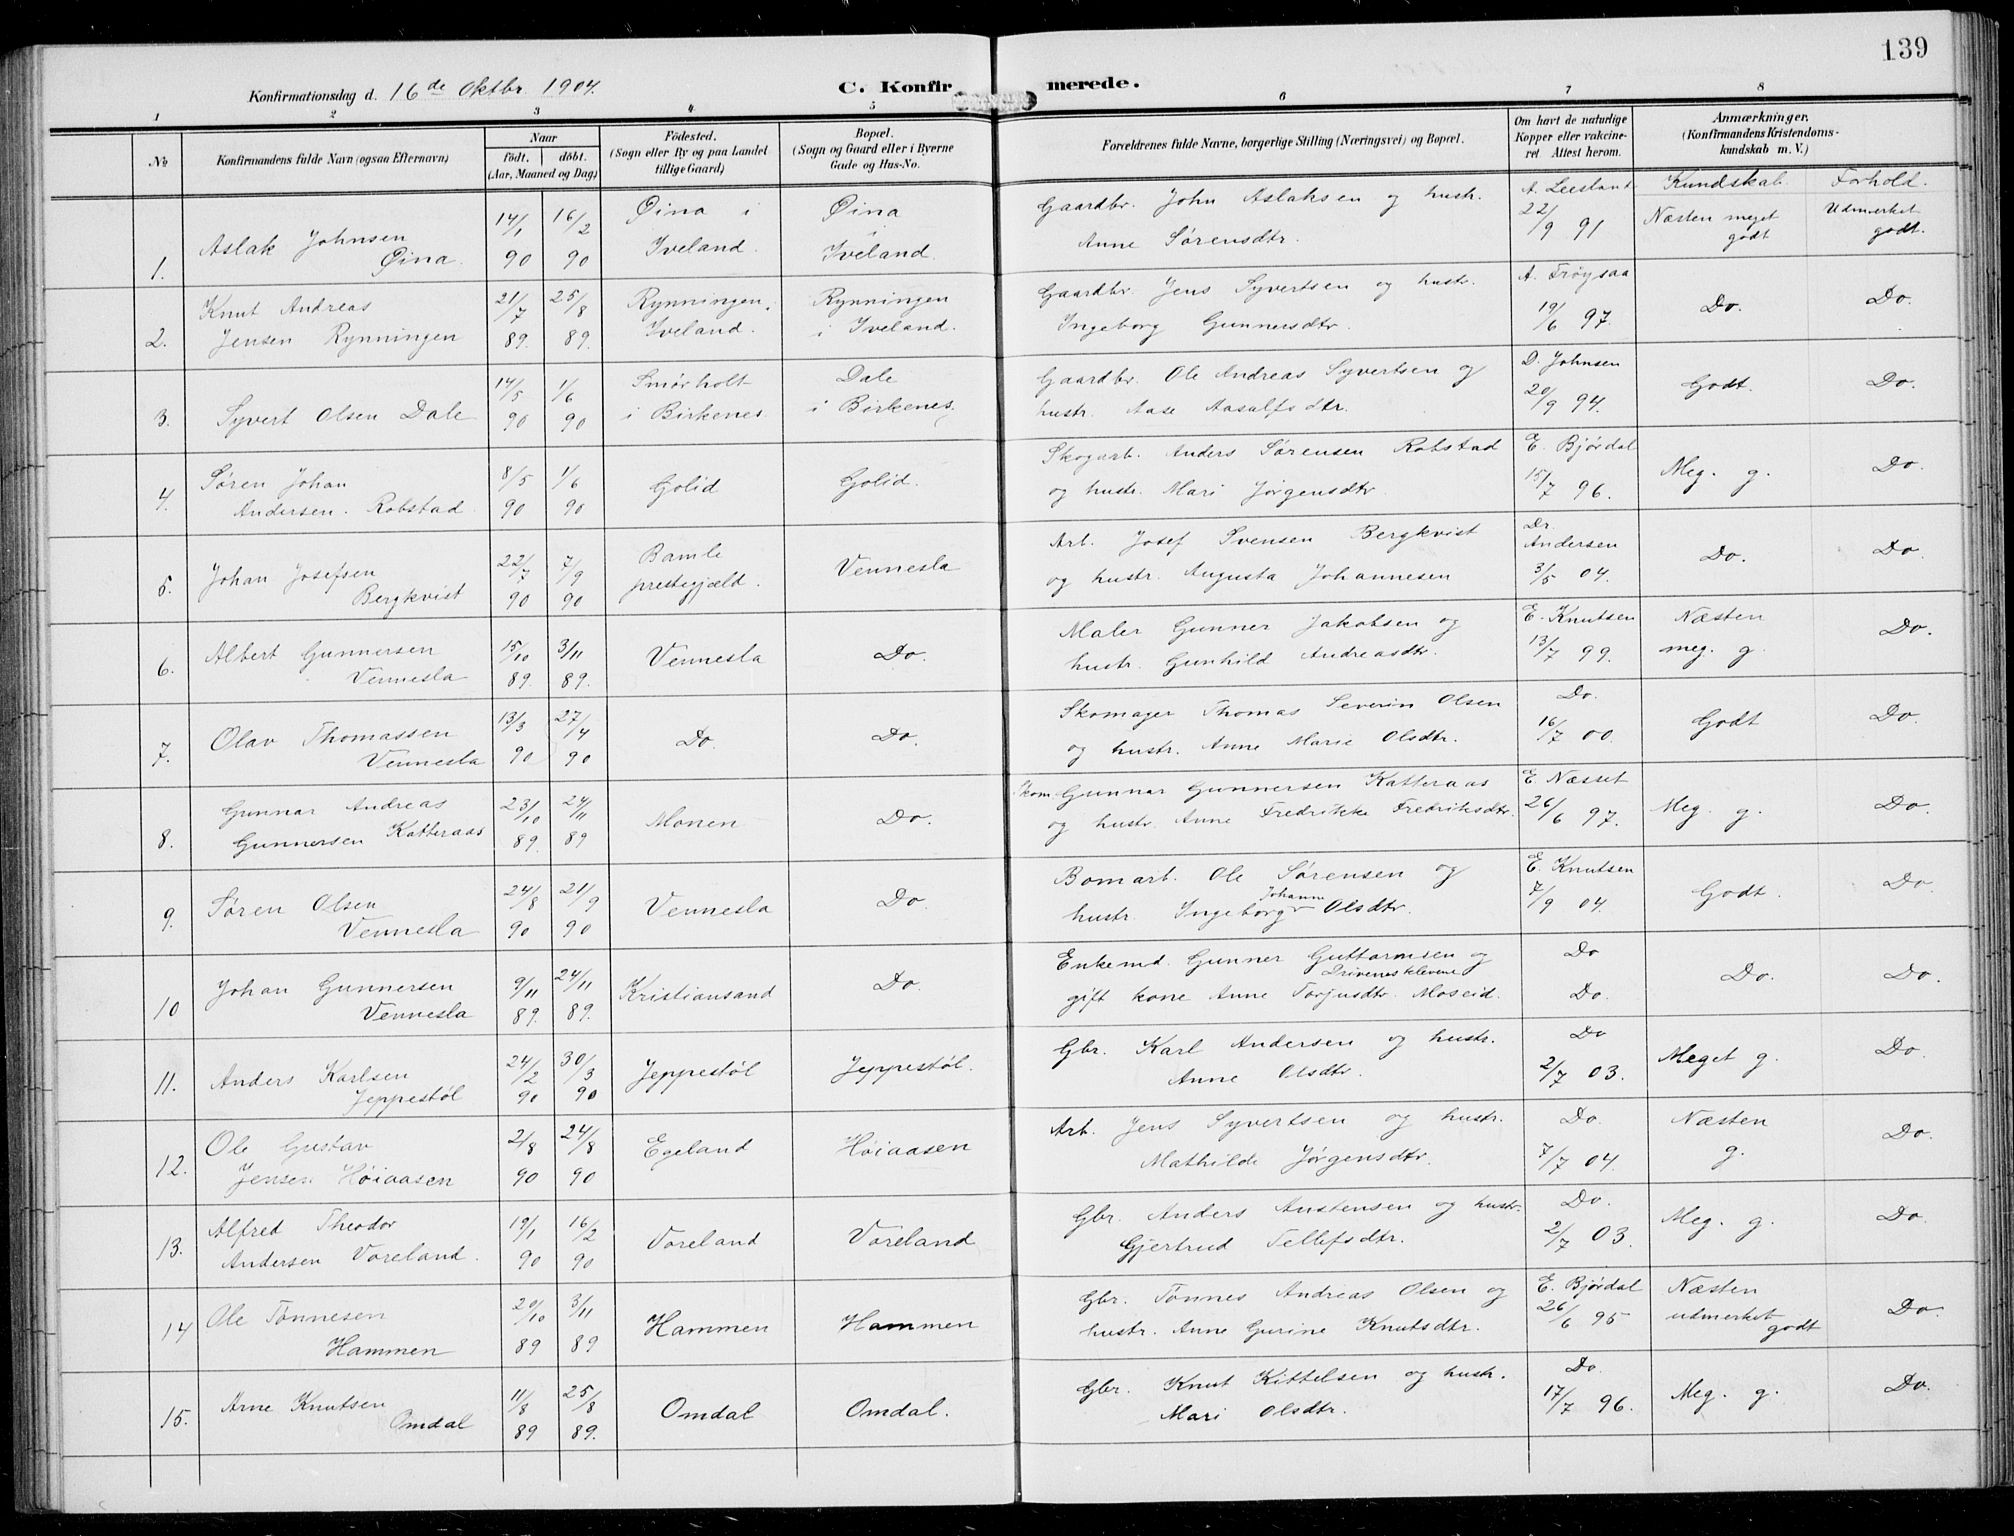 139
Konfirmationsdag d. 16de Oktbr. 1904.
C. Konfirmerede.
1 2 3 4 5 6 7 8
No
Konfirmandens fulde Navn (ogsaa Efternavn)
Naar
födt. döbt.
(Aar, Maaned og Dag)
Födested.
(Sogn eller By og paa Landet
tillige Gaard)
Bopæl.
(Sogn og Gaard eller i Byerne
Gade og Hus-No.
Forældrenes fulde Navne, borgerlige Stilling (Næringsvei) og Bopæl.
Om havt de naturlige
Kopper eller vakcine-
ret. Attest herom.
Anmærkninger.
(Konfirmandens Kristendoms-
kundskab m. V.)
Kundskab. Forhold.
1. Aslak Johnsen
Øina.
14/1 90
16/2 90
Øina i
Iveland.
Øina
i
Iveland.
Gaardbr. John Aslaksen og hustr.
Anne Sørensdtr.
A. Leesland
22/9 91
Næsten meget
godt
Udmerket
godt.
2. Knut Andreas
Jensen Rynningen
21/7 89.
25/8 89.
Rynningen i
Iveland.
Rynningen
i Iveland.
Gaardbr. Jens Syvertsen og hustr.
Ingeborg Gunnersdtr.
A. Frøysaa
19/6 97.
Do.
Do.
3. Syvert Olsen Dale
14/5 90
1/6 90
Smørholt
i Birkenes.
Dale
i Birkenes.
Gaardbr. Ole Andreas Syvertsen og
hustr. Aase Aasulfsdtr.
D. Johnsen
20/9 94.
Godt.
Do.
4. Søren Johan
Andersen Robstad
8/5 90
1/6 90
Golid
Golid.
Skogarb. Anders Sørensen Robstad
og hustr. Mari Jørgensdtr.
E. Bjørdal
15/7 96.
Meg. g.
Do.
5. Johan Josefsen
Bergkvist
22/7 90
7/9 90
Bamle
prestegjæld.
Vennesla
Arb. Josef Svensen Bergkvist
og hustr. Augusta Johannesen
Dr.
Andersen
3/5 04.
Do.
Do.
6. Albert Gunnersen
Vennesla
15/10 89.
3/11 89.
Vennesla
Do.
Maler Gunner Jakobsen og
hustr. Gunhild Andreasdtr.
E. Knutsen
13/7 99.
Næsten
meg. g.
Do.
7. Olav Thomassen
Vennesla
13/3 90
27/4 90
Do.
Do.
Skomager Thomas Severin Olsen
og hustr. Anne Marie Olsdtr.
Do.
16/7 00.
Godt
Do.
8. Gunnar Andreas
Gunnersen Katteraas
23/10 89.
24/11 89
Monen
Do.
Skom. Gunnar Gunnersen Katteraas
og hustr. Anne Fredrikke Fredriksdtr.
E. Næsset
26/6 97.
Meg. g.
Do.
9. Søren Olsen
Vennesla
24/8 90
21/9 90
Vennesla
Do.
Bomarb. Ole Sørensen og
hustr. Ingeborg Johanne Olsdtr.
E. Knutsen
7/9 04.
Godt.
Do.
10 Johan Gunnersen
Vennesla
9/11 89.
24/11 89.
Kristiansand
Do.
Enkemd. Gunner Guttormsen og
Drivenesklevene
gift kone Anne Torjusdtr. Moseid.
Do
Do.
Do.
Do.
11. Anders Karlsen
Jeppestøl
24/2 90
30/3 90
Jeppestøl
Jeppestøl.
Gbr. Karl Andersen og hustr.
Anne Olsdtr.
Do
2/7 03.
Meget g.
Do.
12. Ole Gustav
Jensen Høiaasen
2/8 90
24/8 90
Egeland
Høiaasen
Arb. Jens Syvertsen og hustr.
Mathilde Jørgensdtr.
Do.
7/7 04.
Næsten
g.
Do.
13. Alfred Theodor
Andersen Voreland.
19/1 90
16/2 90
Voreland
Voreland
Gbr. Anders Austensen og hustr.
Gjertrud Tellefsdtr.
Do.
2/7 03.
Meg. g.
Do.
14 Ole Tønnesen
Hammen
20/10 89
3/11 89
Hammen
Hammen
Gbr. Tønnes Andreas Olsen og
hustr. Anne Gurine Knutsdtr.
E. Bjørdal
26/6 95
Næsten
udmerket
godt
Do.
15. Arne Knutsen
Omdal
11/8 89
25/8 89.
Omdal
Omdal.
Gbr. Knut Kittelsen og hustr.
Mari Olsdtr.
Do.
17/7 96.
Meg. g.
Do.